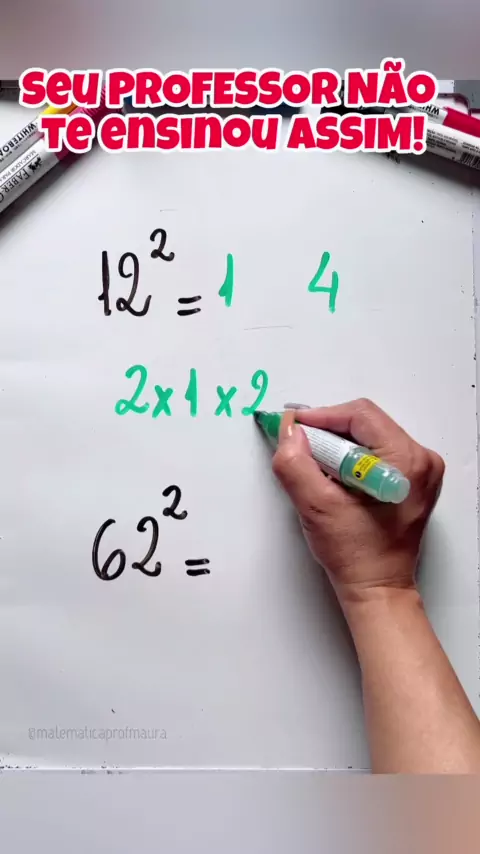 Seu PROFESSOR NÃO
Te ensinou ASSIM!
WHITEBOARD
FABER-C
12² = 1 4
2x1x2
62² =
@matematicaprofmaura